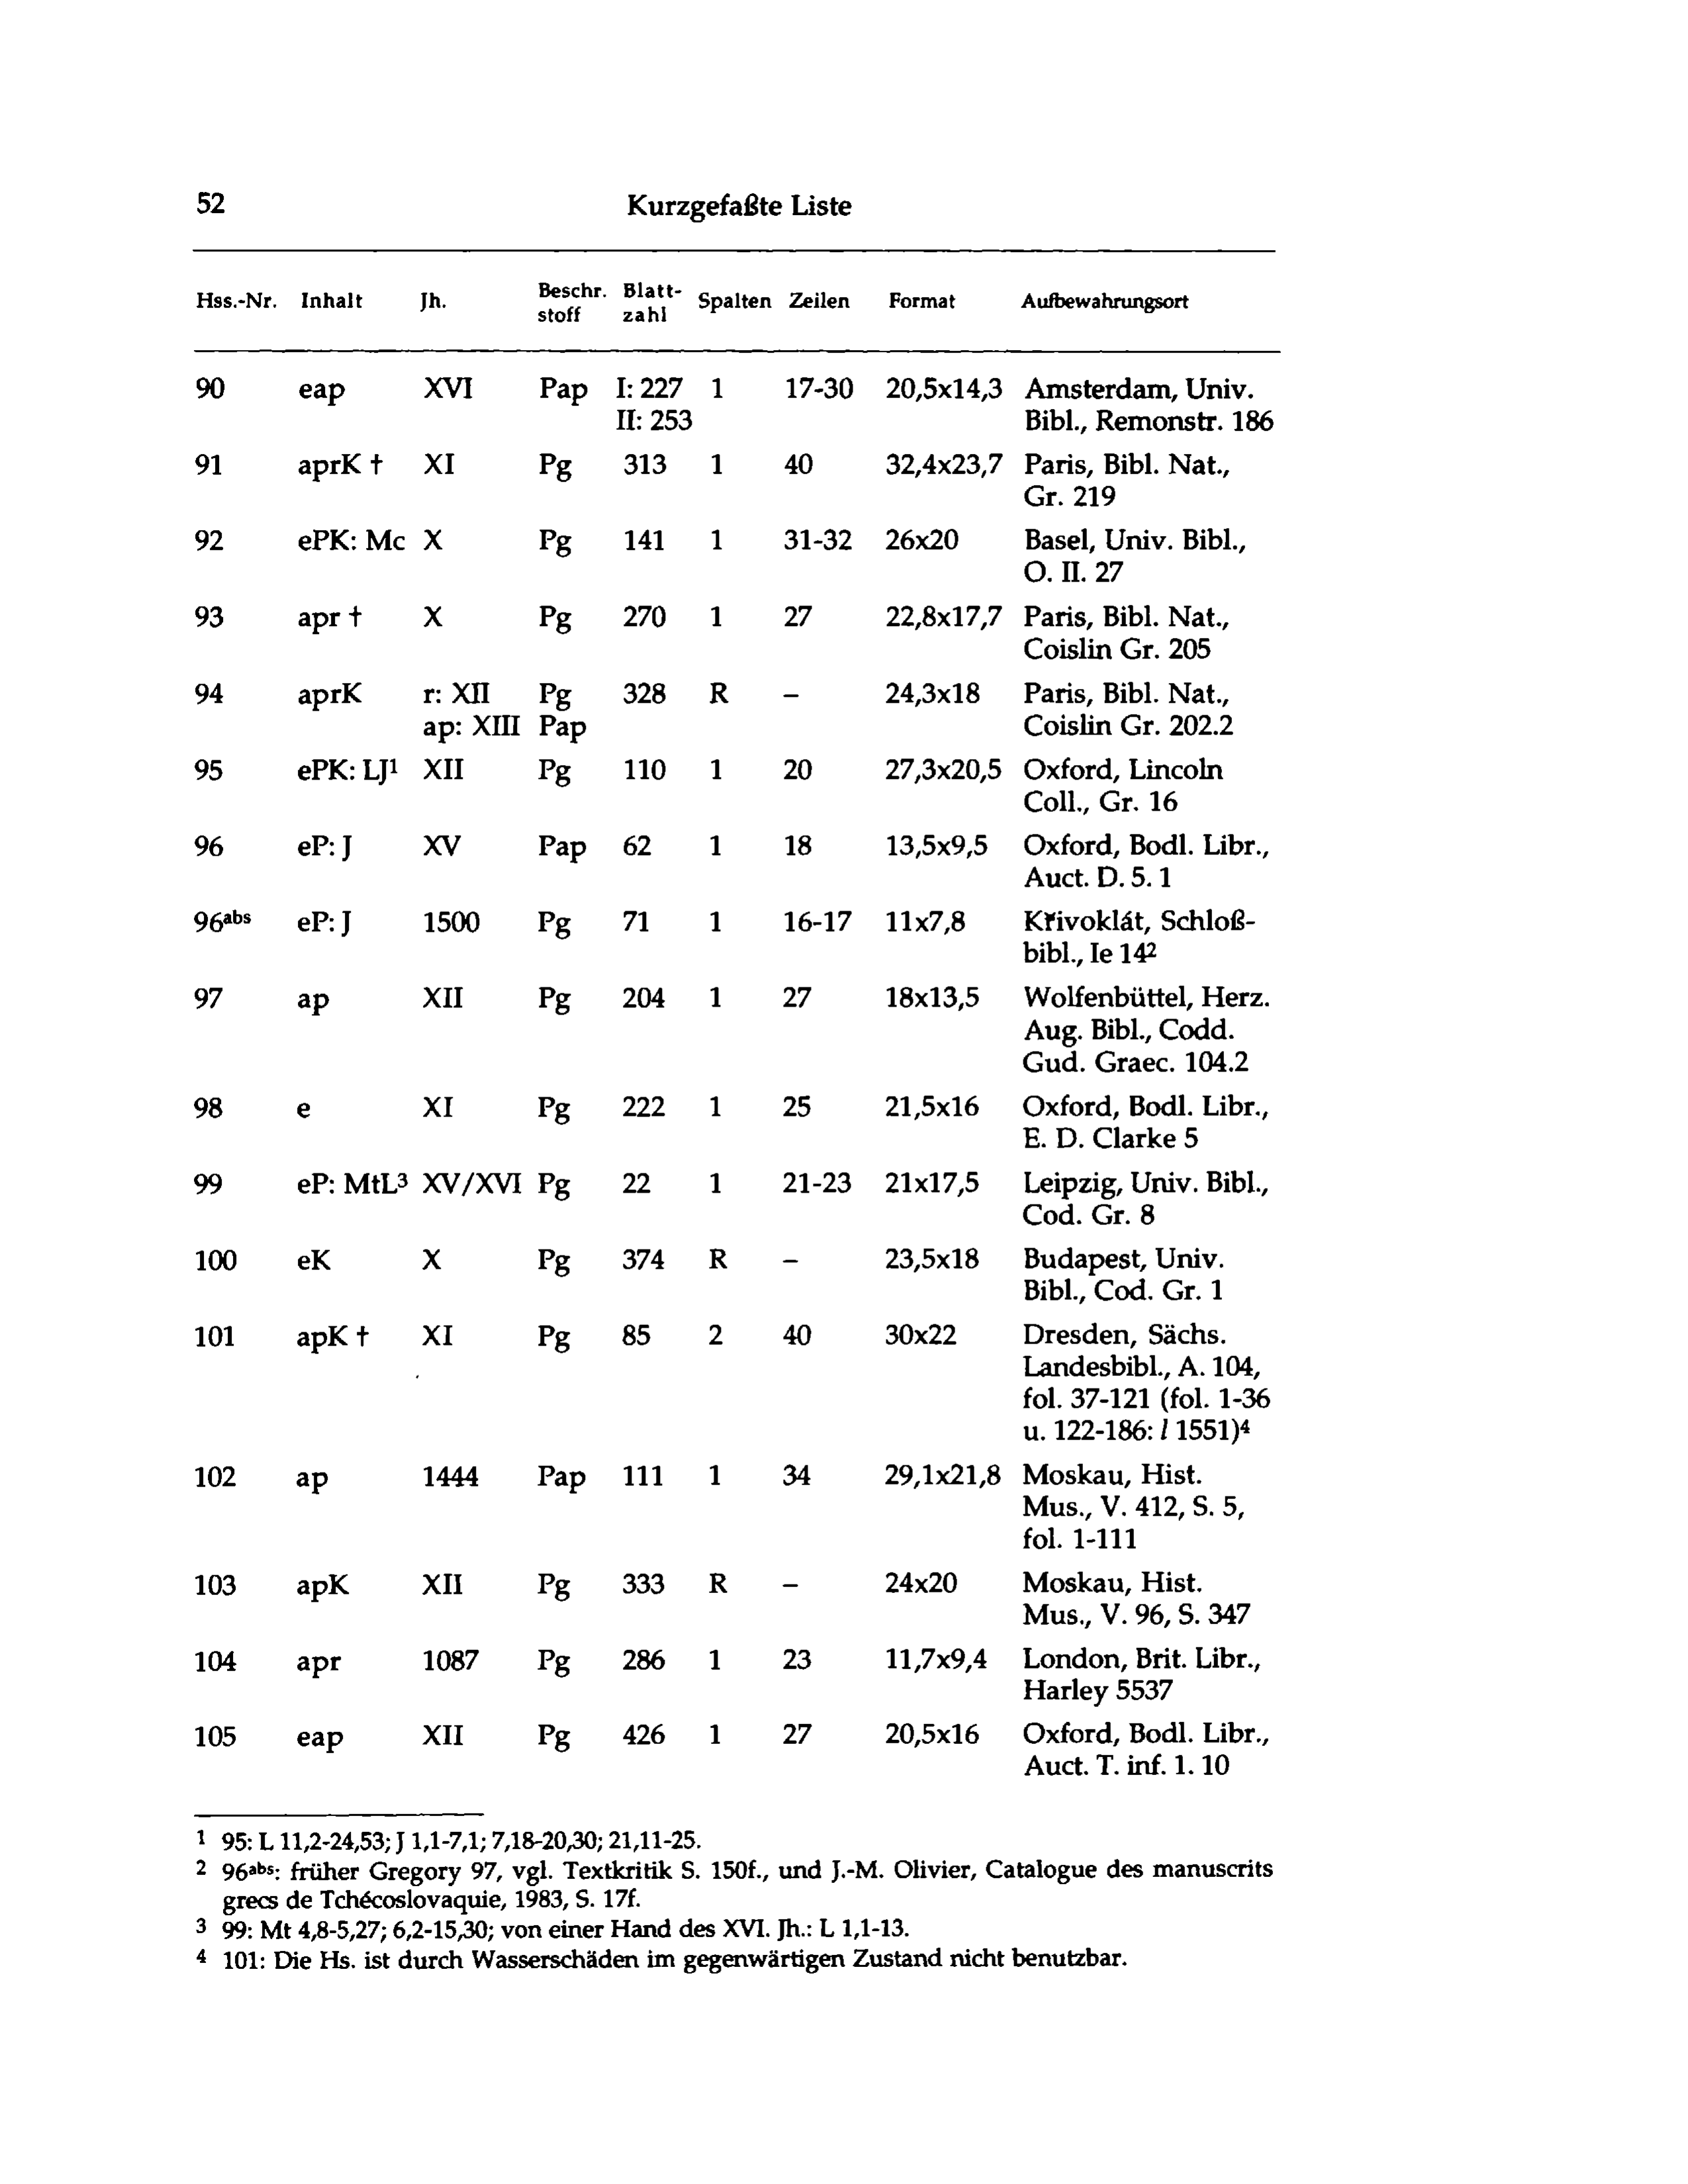 52 Kurzgefaßte Liste
Hss.-Nr. Inhalt Jh. Beschr. stoff Blatt- zahl Spalten Zeilen Format Aufbewahrungsort
90 eap XVI Pap I: 227 1 17-30 20,5x14,3 Amsterdam, Univ.
II: 253 Bibl., Remonstr. 186
91 aprK † XI Pg 313 1 40 32,4x23,7 Paris, Bibl. Nat.,
Gr. 219
92 ePK: Mc X Pg 141 1 31-32 26x20 Basel, Univ. Bibl.,
O. II. 27
93 apr † X Pg 270 1 27 22,8x17,7 Paris, Bibl. Nat.,
Coislin Gr. 205
94 aprK r: XII Pg 328 R – 24,3x18 Paris, Bibl. Nat.,
ap: XIII Pap Coislin Gr. 202.2
95 ePK: LJ¹ XII Pg 110 1 20 27,3x20,5 Oxford, Lincoln
Coll., Gr. 16
96 eP: J XV Pap 62 1 18 13,5x9,5 Oxford, Bodl. Libr.,
Auct. D. 5. 1
96ᵃᵇˢ eP: J 1500 Pg 71 1 16-17 11x7,8 Křivoklát, Schloß-
bibl., Ie 14²
97 ap XII Pg 204 1 27 18x13,5 Wolfenbüttel, Herz.
Aug. Bibl., Codd.
Gud. Graec. 104.2
98 e XI Pg 222 1 25 21,5x16 Oxford, Bodl. Libr.,
E. D. Clarke 5
99 eP: MtL³ XV/XVI Pg 22 1 21-23 21x17,5 Leipzig, Univ. Bibl.,
Cod. Gr. 8
100 eK X Pg 374 R – 23,5x18 Budapest, Univ.
Bibl., Cod. Gr. 1
101 apK † XI Pg 85 2 40 30x22 Dresden, Sächs.
Landesbibl., A. 104,
fol. 37-121 (fol. 1-36
u. 122-186: l 1551)⁴
102 ap 1444 Pap 111 1 34 29,1x21,8 Moskau, Hist.
Mus., V. 412, S. 5,
fol. 1-111
103 apK XII Pg 333 R – 24x20 Moskau, Hist.
Mus., V. 96, S. 347
104 apr 1087 Pg 286 1 23 11,7x9,4 London, Brit. Libr.,
Harley 5537
105 eap XII Pg 426 1 27 20,5x16 Oxford, Bodl. Libr.,
Auct. T. inf. 1. 10
¹ 95: L 11,2-24,53; J 1,1-7,1; 7,18-20,30; 21,11-25.
² 96ᵃᵇˢ: früher Gregory 97, vgl. Textkritik S. 150f., und J.-M. Olivier, Catalogue des manuscrits
grecs de Tchécoslovaquie, 1983, S. 17f.
³ 99: Mt 4,8-5,27; 6,2-15,30; von einer Hand des XVI. Jh.: L 1,1-13.
⁴ 101: Die Hs. ist durch Wasserschäden im gegenwärtigen Zustand nicht benutzbar.